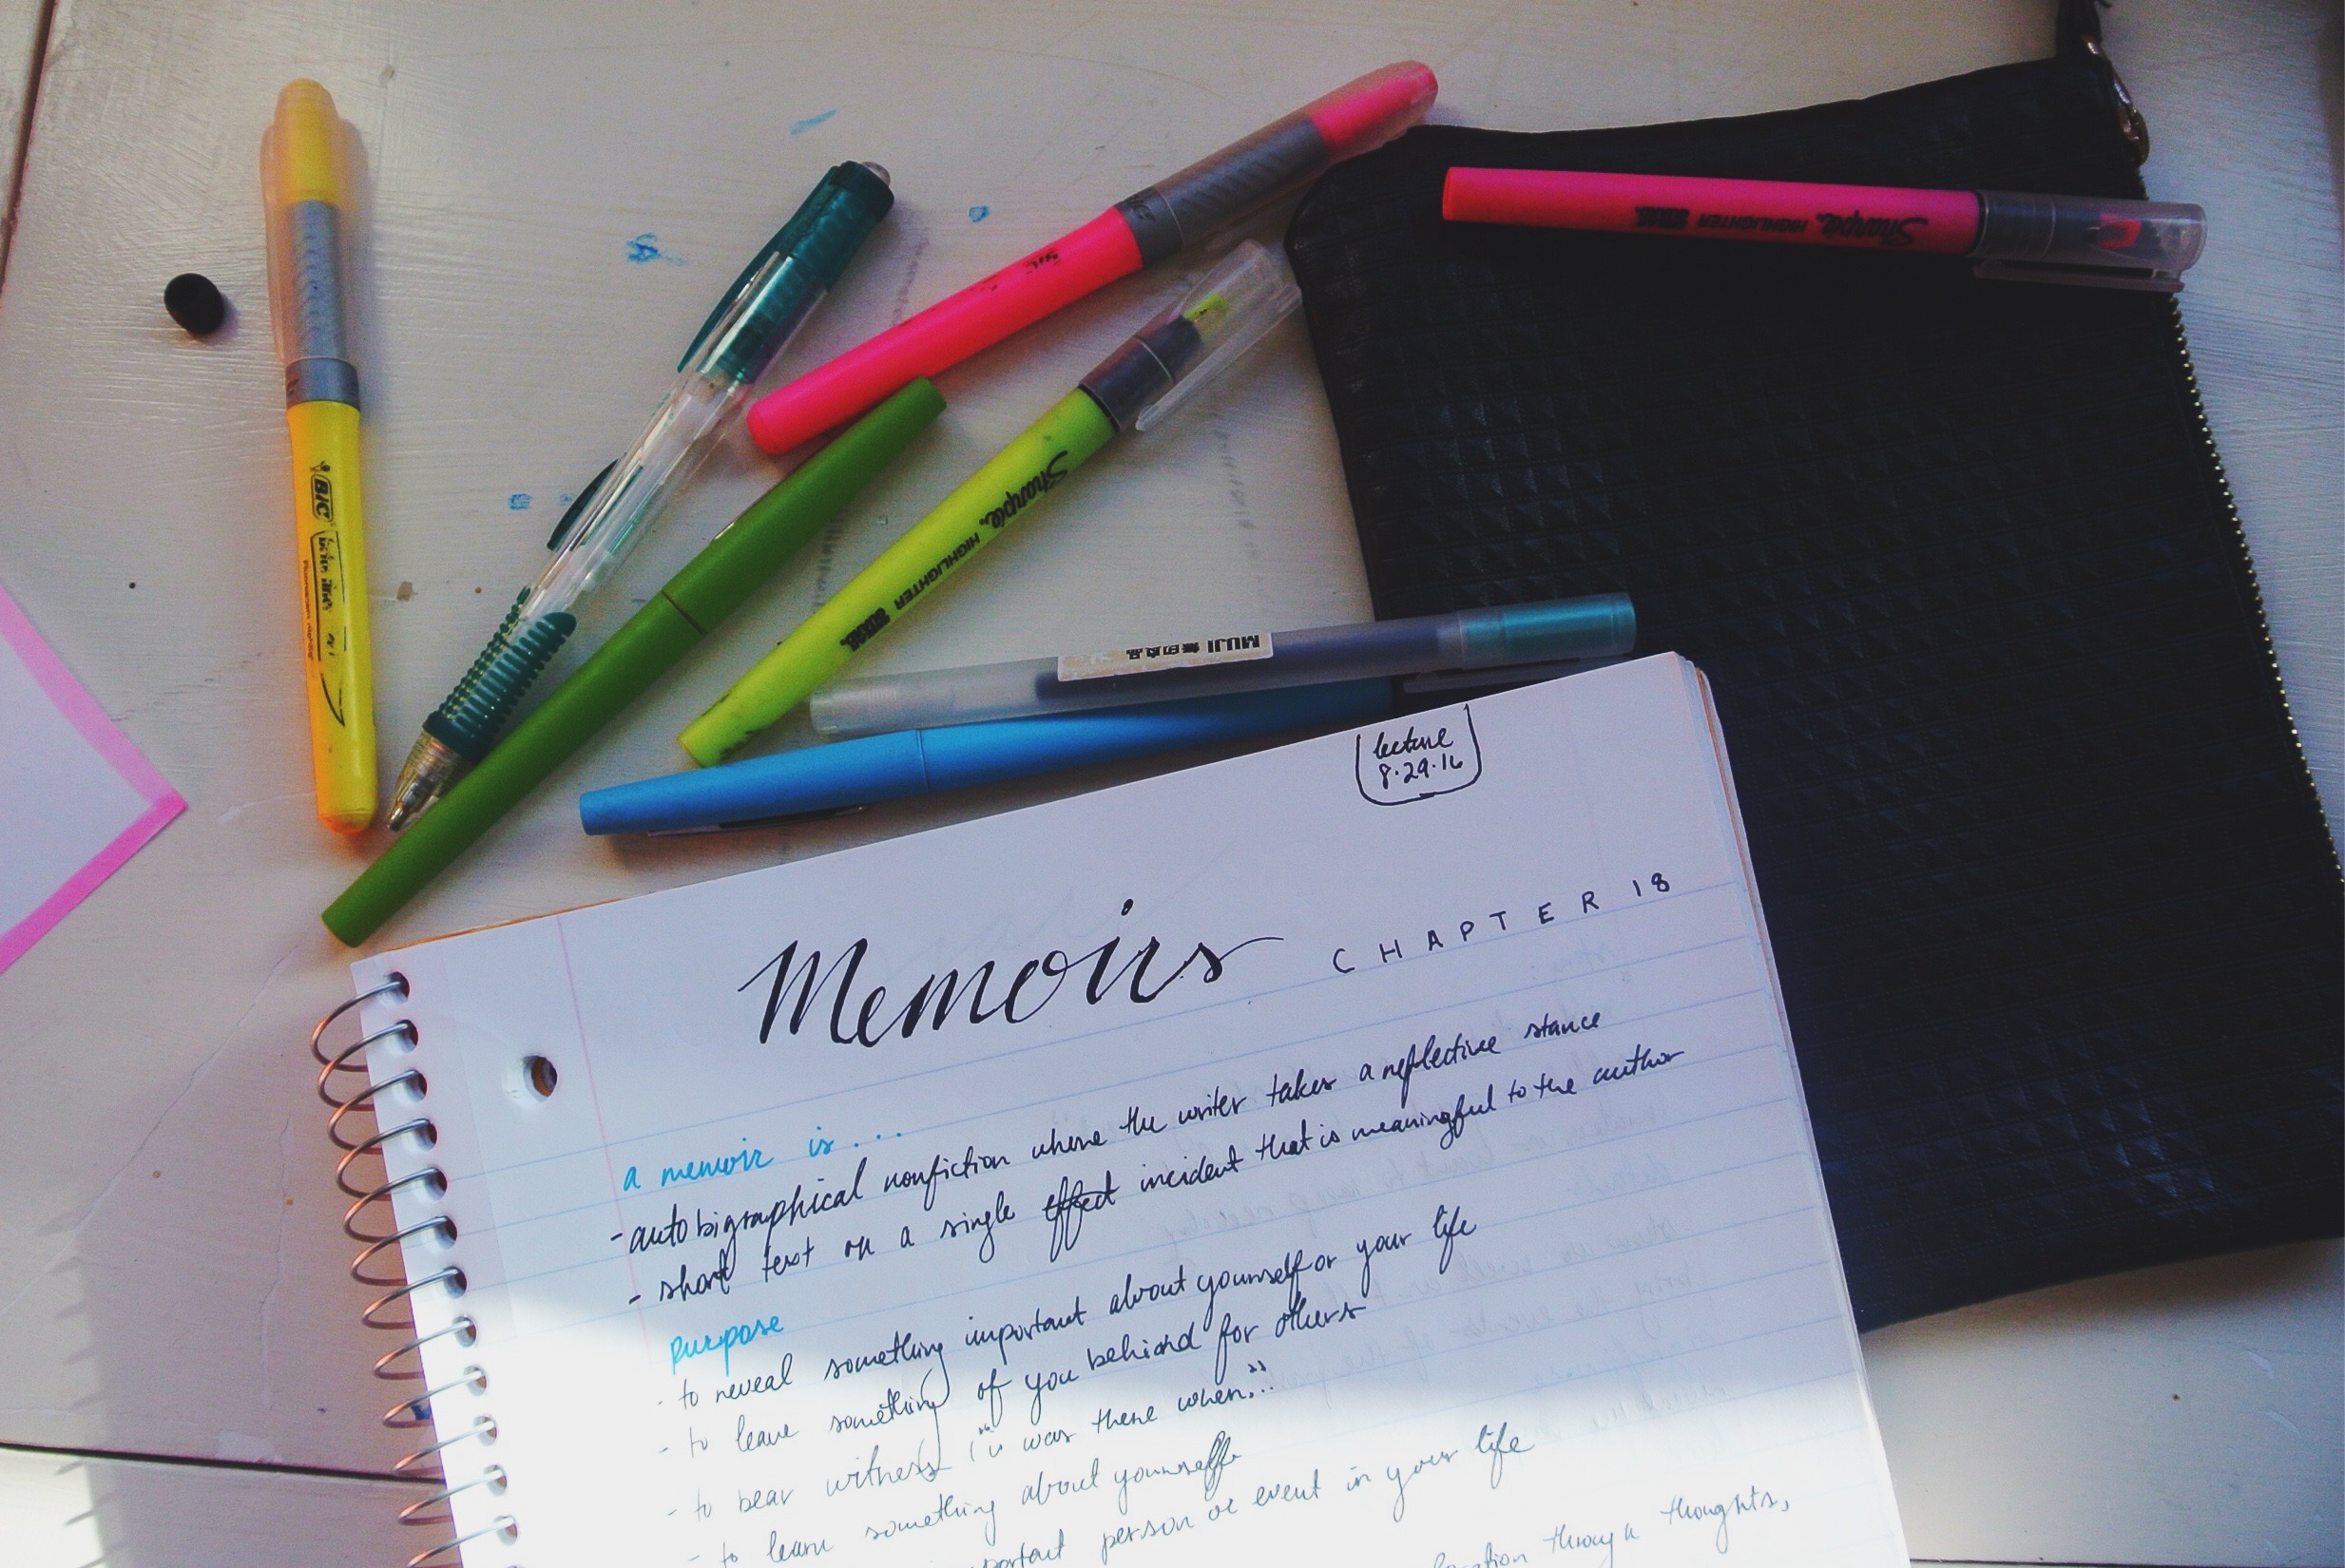 BIC
Sharpie. HIGHLIGHTER
Sharpie. HIGHLIGHTER
MUJI 無印良品
lecture
8.29.16
Memoirs CHAPTER 18
a memoir is...
- autobigraphical nonfiction where the writer takes a reflective stance
- short text on a single effect incident that is meaningful to the author
purpose
- to reveal something important about yourself or your life
- to leave something of you behind for others
- to bear witness ("i was there when..."
- to learn something about yourself
person or event in your life
through thoughts,